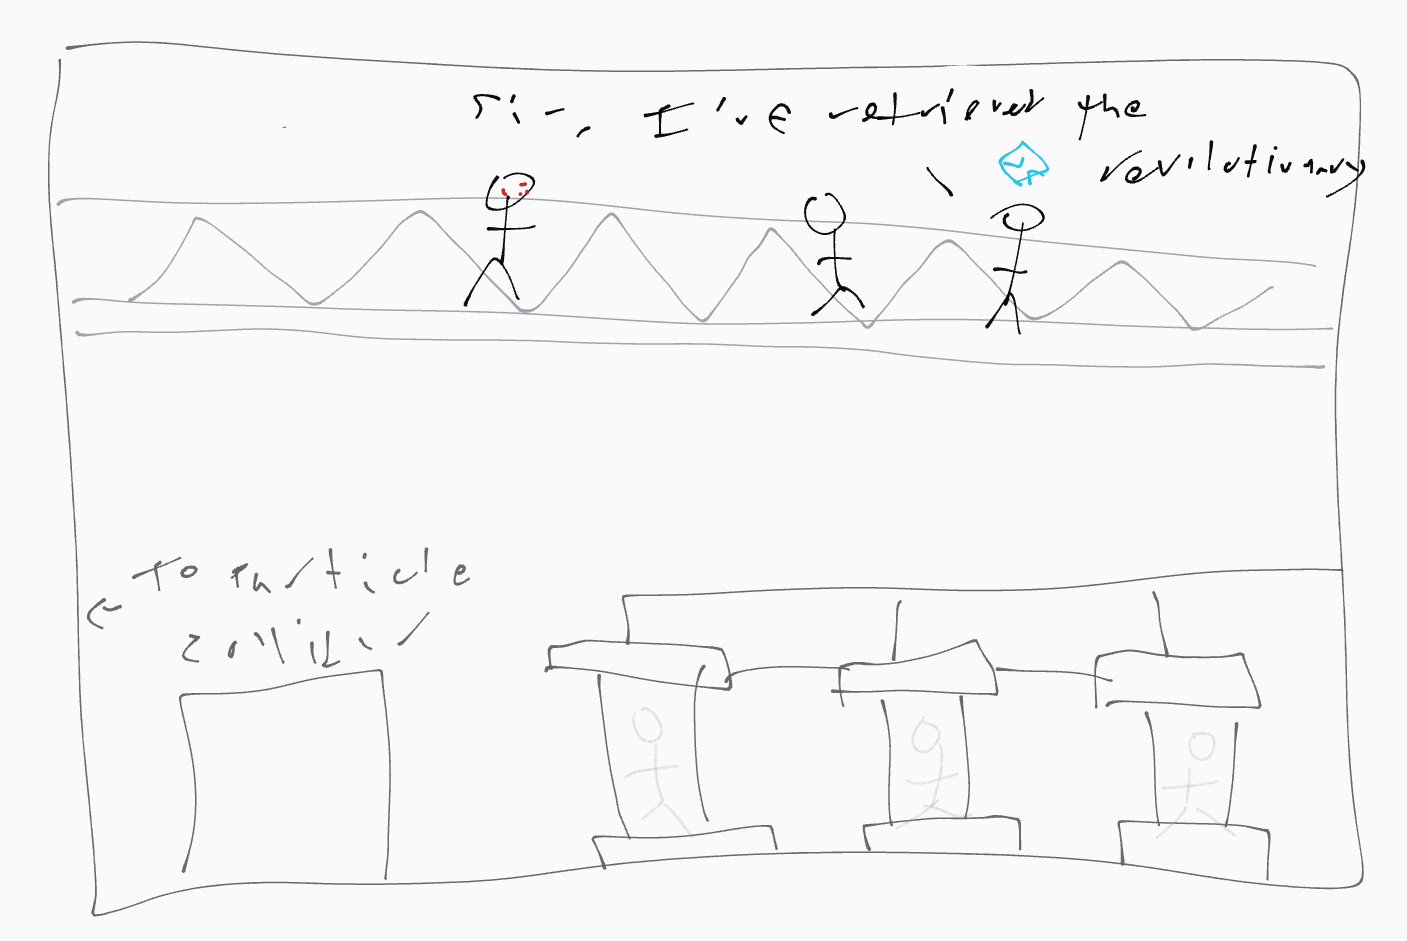 Sir, I've retrieved the
revolutionary
To particle
collider